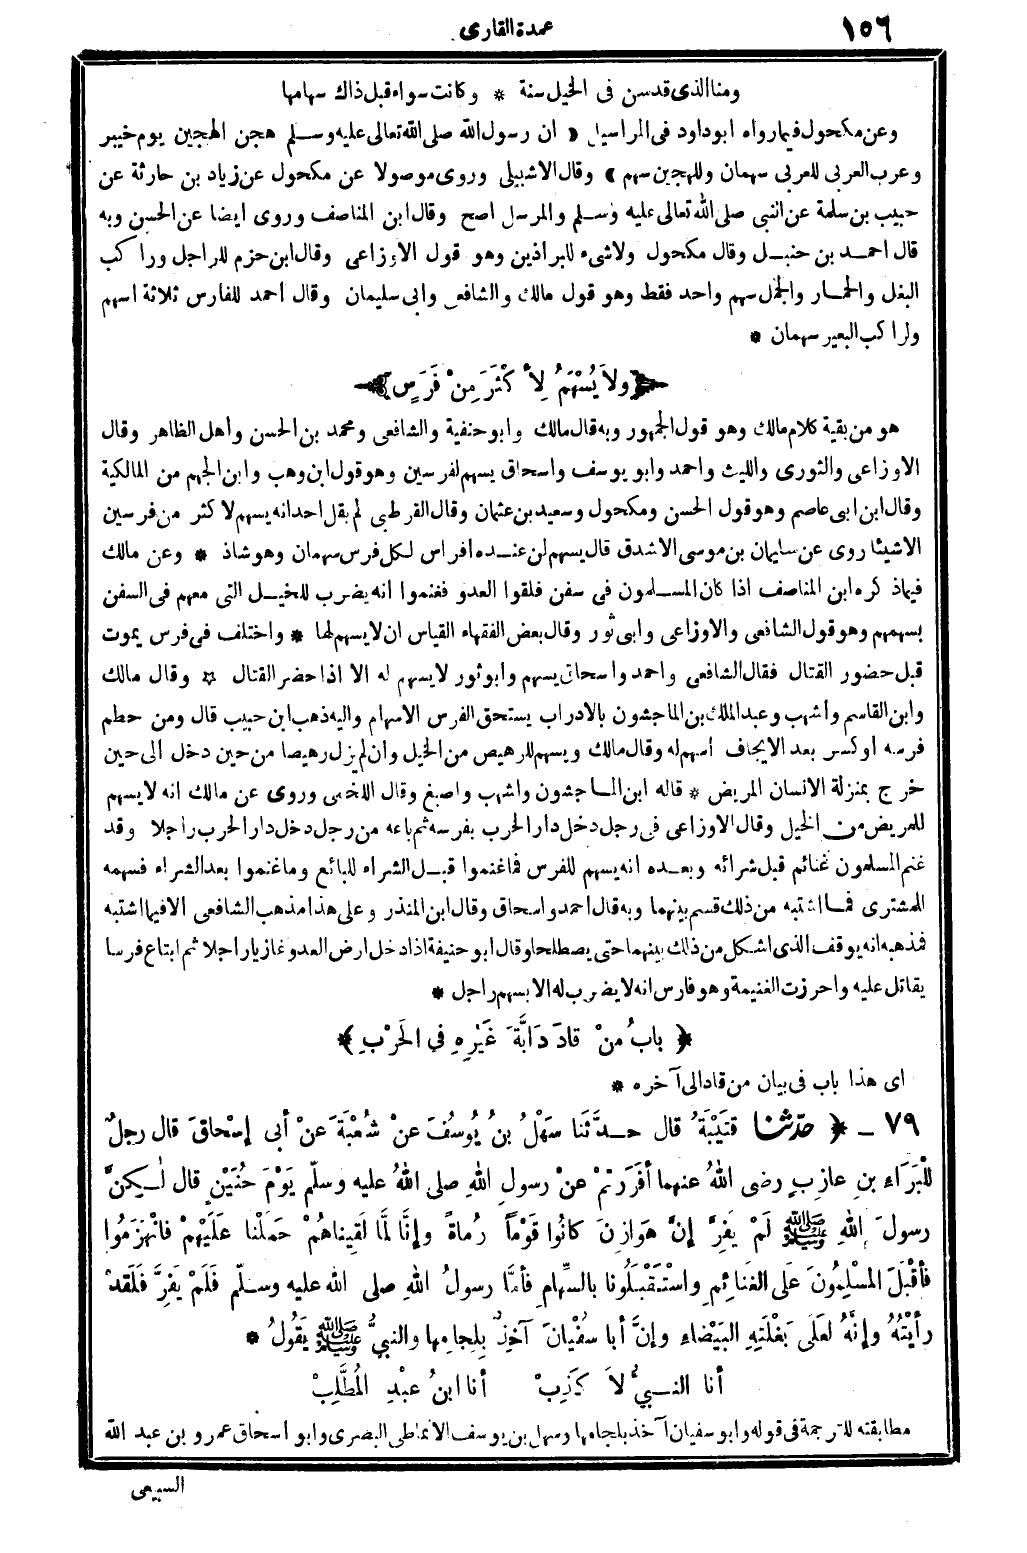 ١٥٦
عمدة القارى
ومنا الذى قد سن فى الخيل سنة * وكانت سواء قبل ذاك سهامها
وعن مكحول فيما رواه ابو داود فى المراسيل « ان رسول الله صلى الله تعالى عليه وسلم هجن الهجين يوم خيبر
وعرب العربى للعربى سهمان وللهجين سهم » وقال الاشبيلى وروى موصولا عن مكحول عن زياد بن حارثة عن
حبيب بن سلمة عن النبى صلى الله تعالى عليه وسلم والمرسل اصح وقال ابن المناصف وروى ايضا عن الحسن وبه
قال احمد بن حنبل وقال مكحول ولا شىء للبراذين وهو قول الاوزاعى وقال ابن حزم للراجل وراكب
البغل والحمار والجمل سهم واحد فقط وهو قول مالك والشافعى وابى سليمان وقال احمد للفارس ثلاثة اسهم
ولراكب البعير سهمان *
﴿ ولاَ يُسْهَمُ لِأَكْثَرَ مِنْ فَرَسٍ ﴾
هو من بقية كلام مالك وهو قول الجمهور وبه قال مالك وابو حنيفة والشافعى ومحمد بن الحسن وأهل الظاهر وقال
الاوزاعى والثورى والليث واحمد وابو يوسف واسحاق يسهم لفرسين وهو قول ابن وهب وابن الجهم من المالكية
وقال ابن ابى عاصم وهو قول الحسن ومكحول وسعيد بن عثمان وقال القرطبى لم يقل احد انه يسهم لاكثر من فرسين
الا شيئا روى عن سليمان بن موسى الاشدق قال يسهم لمن عنده افراس لكل فرس سهمان وهو شاذ * وعن مالك
فيما ذكره ابن المناصف اذا كان المسلمون فى سفن فلقوا العدو فغنموا انه يضرب للخيل التى معهم فى السفن
بسهمهم وهو قول الشافعى والاوزاعى وابى ثور وقال بعض الفقهاء القياس ان لا يسهم لها * واختلف فى فرس يموت
قبل حضور القتال فقال الشافعى واحمد واسحاق يسهم وابو ثور لا يسهم له الا اذا حضر القتال * وقال مالك
وابن القاسم واشهب وعبد الملك بن الماجشون بالادراب يستحق الفرس الاسهام واليه ذهب ابن حبيب قال ومن حطم
فرسه او كسر بعد الايجاف أسهم له وقال مالك ويسهم للرهيص من الخيل وان لم يزل رهيصا من حين دخل الى حين
خرج بمنزلة الانسان المريض * قاله ابن الماجشون واشهب واصبغ وقال اللخمى وروى عن مالك انه لا يسهم
للمريض من الخيل وقال الاوزاعى فى رجل دخل دار الحرب بفرسه ثم باعه من رجل دخل دار الحرب راجلا وقد
غنم المسلمون غنائم قبل شرائه وبعده انه يسهم للفرس فما غنموا قبل الشراء للبائع وما غنموا بعد الشراء فسهمه
للمشترى فما اشتبه من ذلك قسم بينهما وبه قال احمد واسحاق وقال ابن المنذر وعلى هذا مذهب الشافعى الا فيما اشتبه
فمذهبه انه يوقف الذى اشكل من ذلك بينهما حتى يصطلحا وقال ابو حنيفة اذا دخل ارض العدو غازيا راجلا ثم ابتاع فرسا
يقاتل عليه واحرزت الغنيمة وهو فارس انه لا يضرب له الا بسهم راجل *
﴿ بابُ منْ قادَ دَابَّةَ غَيْرِهِ فِى الحَرْبِ ﴾
اى هذا باب فى بيان من قاد الى آخره *
٧٩ ـ ﴿ حدّثنا قتَيْبَةُ قال حدَّثنا سَهْلُ بنُ يُوسُفَ عنْ شُعْبَةَ عنْ أبى إسْحاقَ قال رجلٌ
لِلْبَرَاءِ بنِ عازِبٍ رضى اللهُ عنهما أفَرَرْتمْ عنْ رسولِ اللهِ صلى اللهُ عليه وسلّم يَوْمَ حُنَيْنٍ قال لٰكِنَّ
رسولَ اللهِ ﷺ لَمْ يَفِرَّ إنَّ هَوَازِنَ كانُوا قَوْماً رُماةً وإنَّا لَمَّا لَقِيناهُمْ حَمَلْنا عَلَيْهِمْ فانْهَزَمُوا
فأقْبَلَ المُسْلِمُونَ عَلَى الغَنائِمِ واسْتَقْبَلُونا بالسِّهامِ فأمَّا رسولُ اللهِ صلى الله عليه وسلّم فَلَمْ يَفِرَّ فَلَقَدْ
رأيْتُهُ وإنَّهُ لَعَلَى بَغْلَتِهِ البَيْضاءِ وإنَّ أبا سُفْيانَ آخِذٌ بِلِجامِها والنبىُّ ﷺ يَقُولُ *
أنا النبىُّ لاَ كَذِبْ أنا ابنُ عبْدِ المُطَّلِبْ
مطابقته للترجمة فى قوله وابو سفيان آخذ بلجامها وسهل بن يوسف الانماطى البصرى وابو اسحاق عمرو بن عبد الله
السبيعى